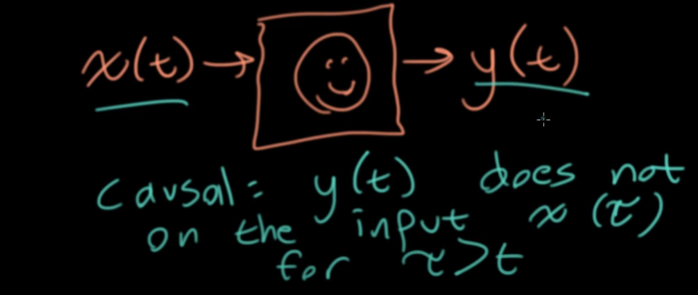 x(t) → → y(t)
Causal: y(t) does not
on the input x(τ)
for τ>t